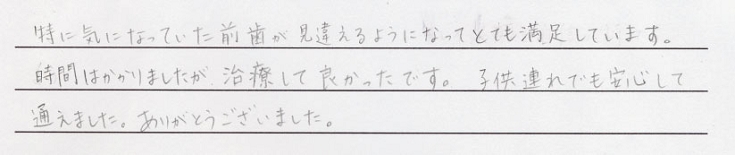 特に気になっていた前歯が見違えるようになってとても満足しています。
時間はかかりましたが治療して良かったです。子供連れでも安心して
通えました。ありがとうございました。